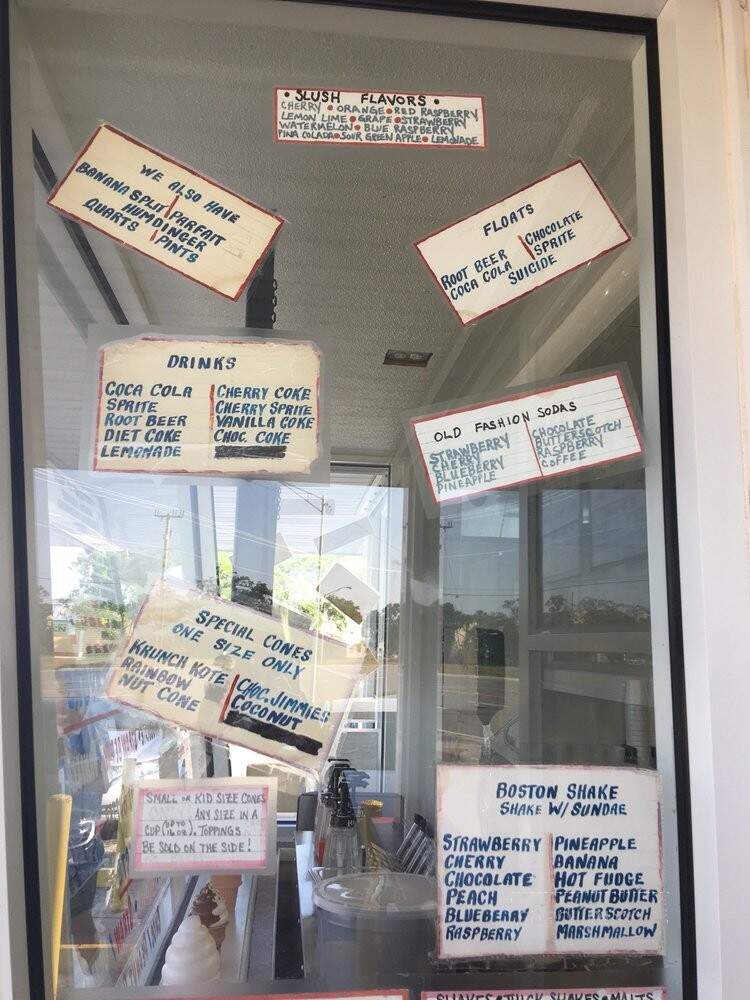 • SLUSH FLAVORS •
CHERRY • ORANGE • RED RASPBERRY
LEMON LIME • GRAPE • STRAWBERRY
WATERMELON • BLUE RASPBERRY
PINA COLADA • SOUR GREEN APPLE • LEMONADE
WE ALSO HAVE
BANANA SPLIT | PARFAIT
HUMDINGER
QUARTS | PINTS
FLOATS
ROOT BEER | CHOCOLATE
COCA COLA | SPRITE
SUICIDE
DRINKS
COCA COLA | CHERRY COKE
SPRITE | CHERRY SPRITE
ROOT BEER | VANILLA COKE
DIET COKE | CHOC. COKE
LEMONADE
OLD FASHION SODAS
STRAWBERRY | CHOCOLATE
CHERRY | BUTTERSCOTCH
BLUEBERRY | RASPBERRY
PINEAPPLE | COFFEE
SPECIAL CONES
ONE SIZE ONLY
KRUNCH KOTE | CHOC. JIMMIES
RAINBOW | COCONUT
NUT CONE
SMALL OR KID SIZE CONES
ANY SIZE IN A
CUP (UP TO 16 OZ). TOPPINGS
BE SOLD ON THE SIDE!
BOSTON SHAKE
SHAKE W/ SUNDAE
STRAWBERRY | PINEAPPLE
CHERRY | BANANA
CHOCOLATE | HOT FUDGE
PEACH | PEANUT BUTTER
BLUEBERRY | BUTTERSCOTCH
RASPBERRY | MARSHMALLOW
SHAKES • THICK SHAKES • MALTS